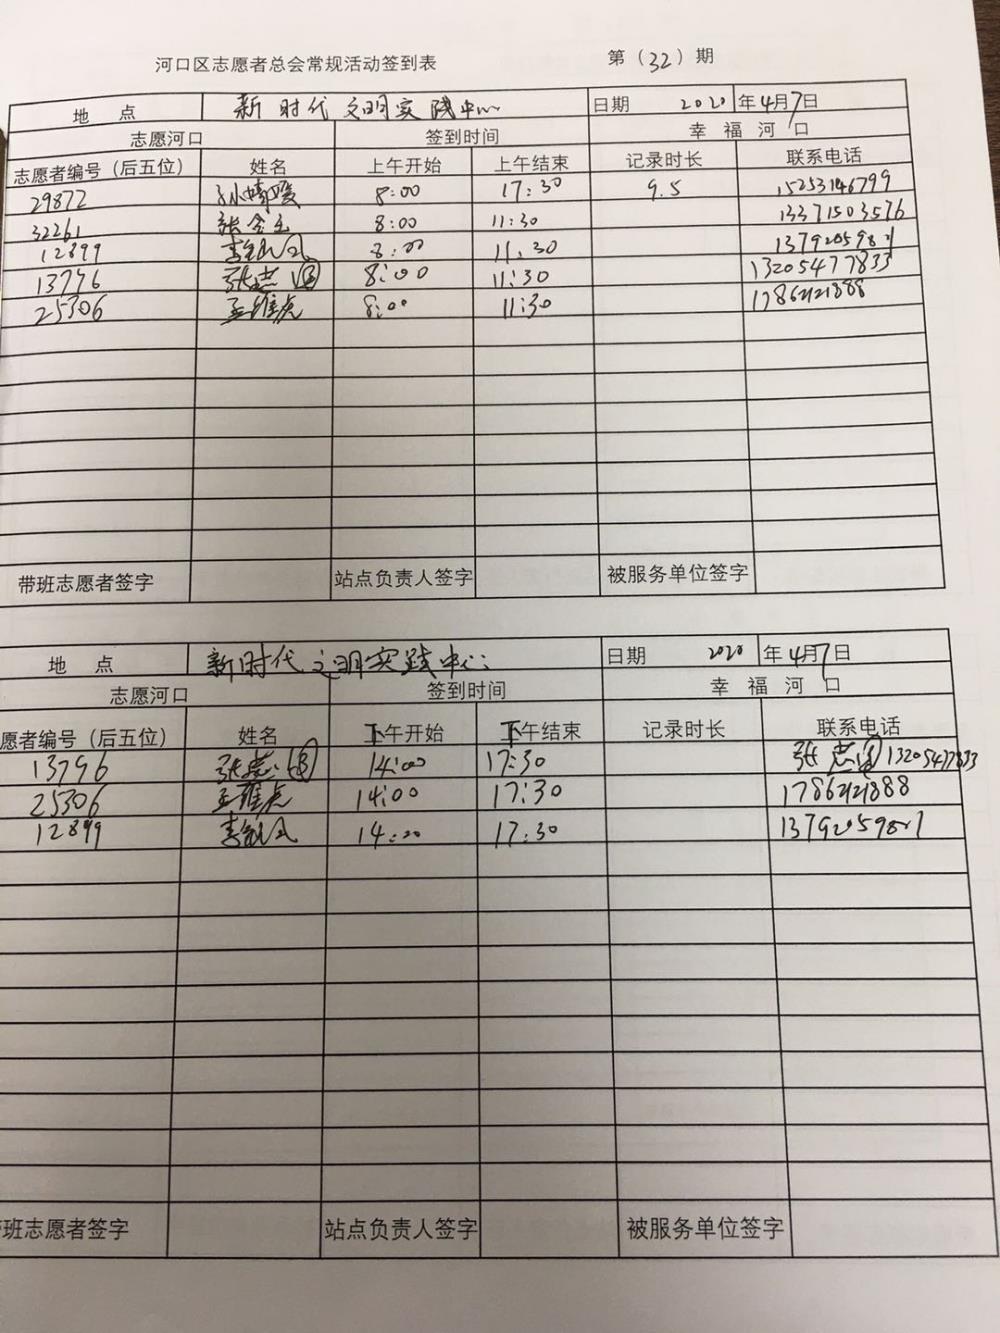 河口区志愿者总会常规活动签到表 第(32)期
地 点 新时代文明实践中心 日期 2020 年4月7日
志愿河口 签到时间 幸 福 河 口
志愿者编号(后五位) 姓名 上午开始 上午结束 记录时长 联系电话
29872 8:00 17:30 9.5 15253146799
32261 8:00 11:30 13371503576
12899 8:00 11:30
13796 张志 8:00 11:30 13205477833
25306 王维虎 8:00 11:30
带班志愿者签字 站点负责人签字 被服务单位签字
地 点 新时代文明实践中心 日期 2020 年4月7日
志愿河口 签到时间 幸 福 河 口
愿者编号(后五位) 姓名 下午开始 下午结束 记录时长 联系电话
13796 张志 14:00 17:30 张志 13205477833
25306 王维虎 14:00 17:30
12899 14:00 17:30
班志愿者签字 站点负责人签字 被服务单位签字